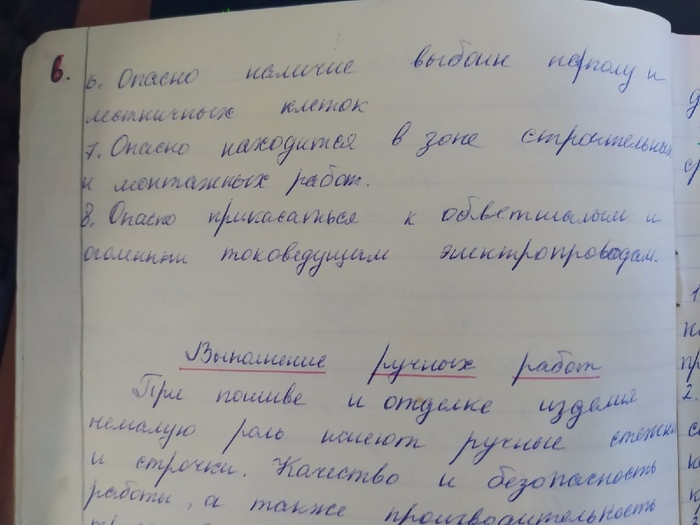 6.
6. Опасно наличие выбоин по полу и
лестничных клеток
7. Опасно находится в зоне строительных
и монтажных работ.
8. Опасно прикасаться к обветшалым и
токоведущим электропроводам.
Выполнение ручных работ
При пошиве и отделке изделия
немалую роль имеют ручные стежки
и строчки. Качество и безопасность
работы, а также производительность